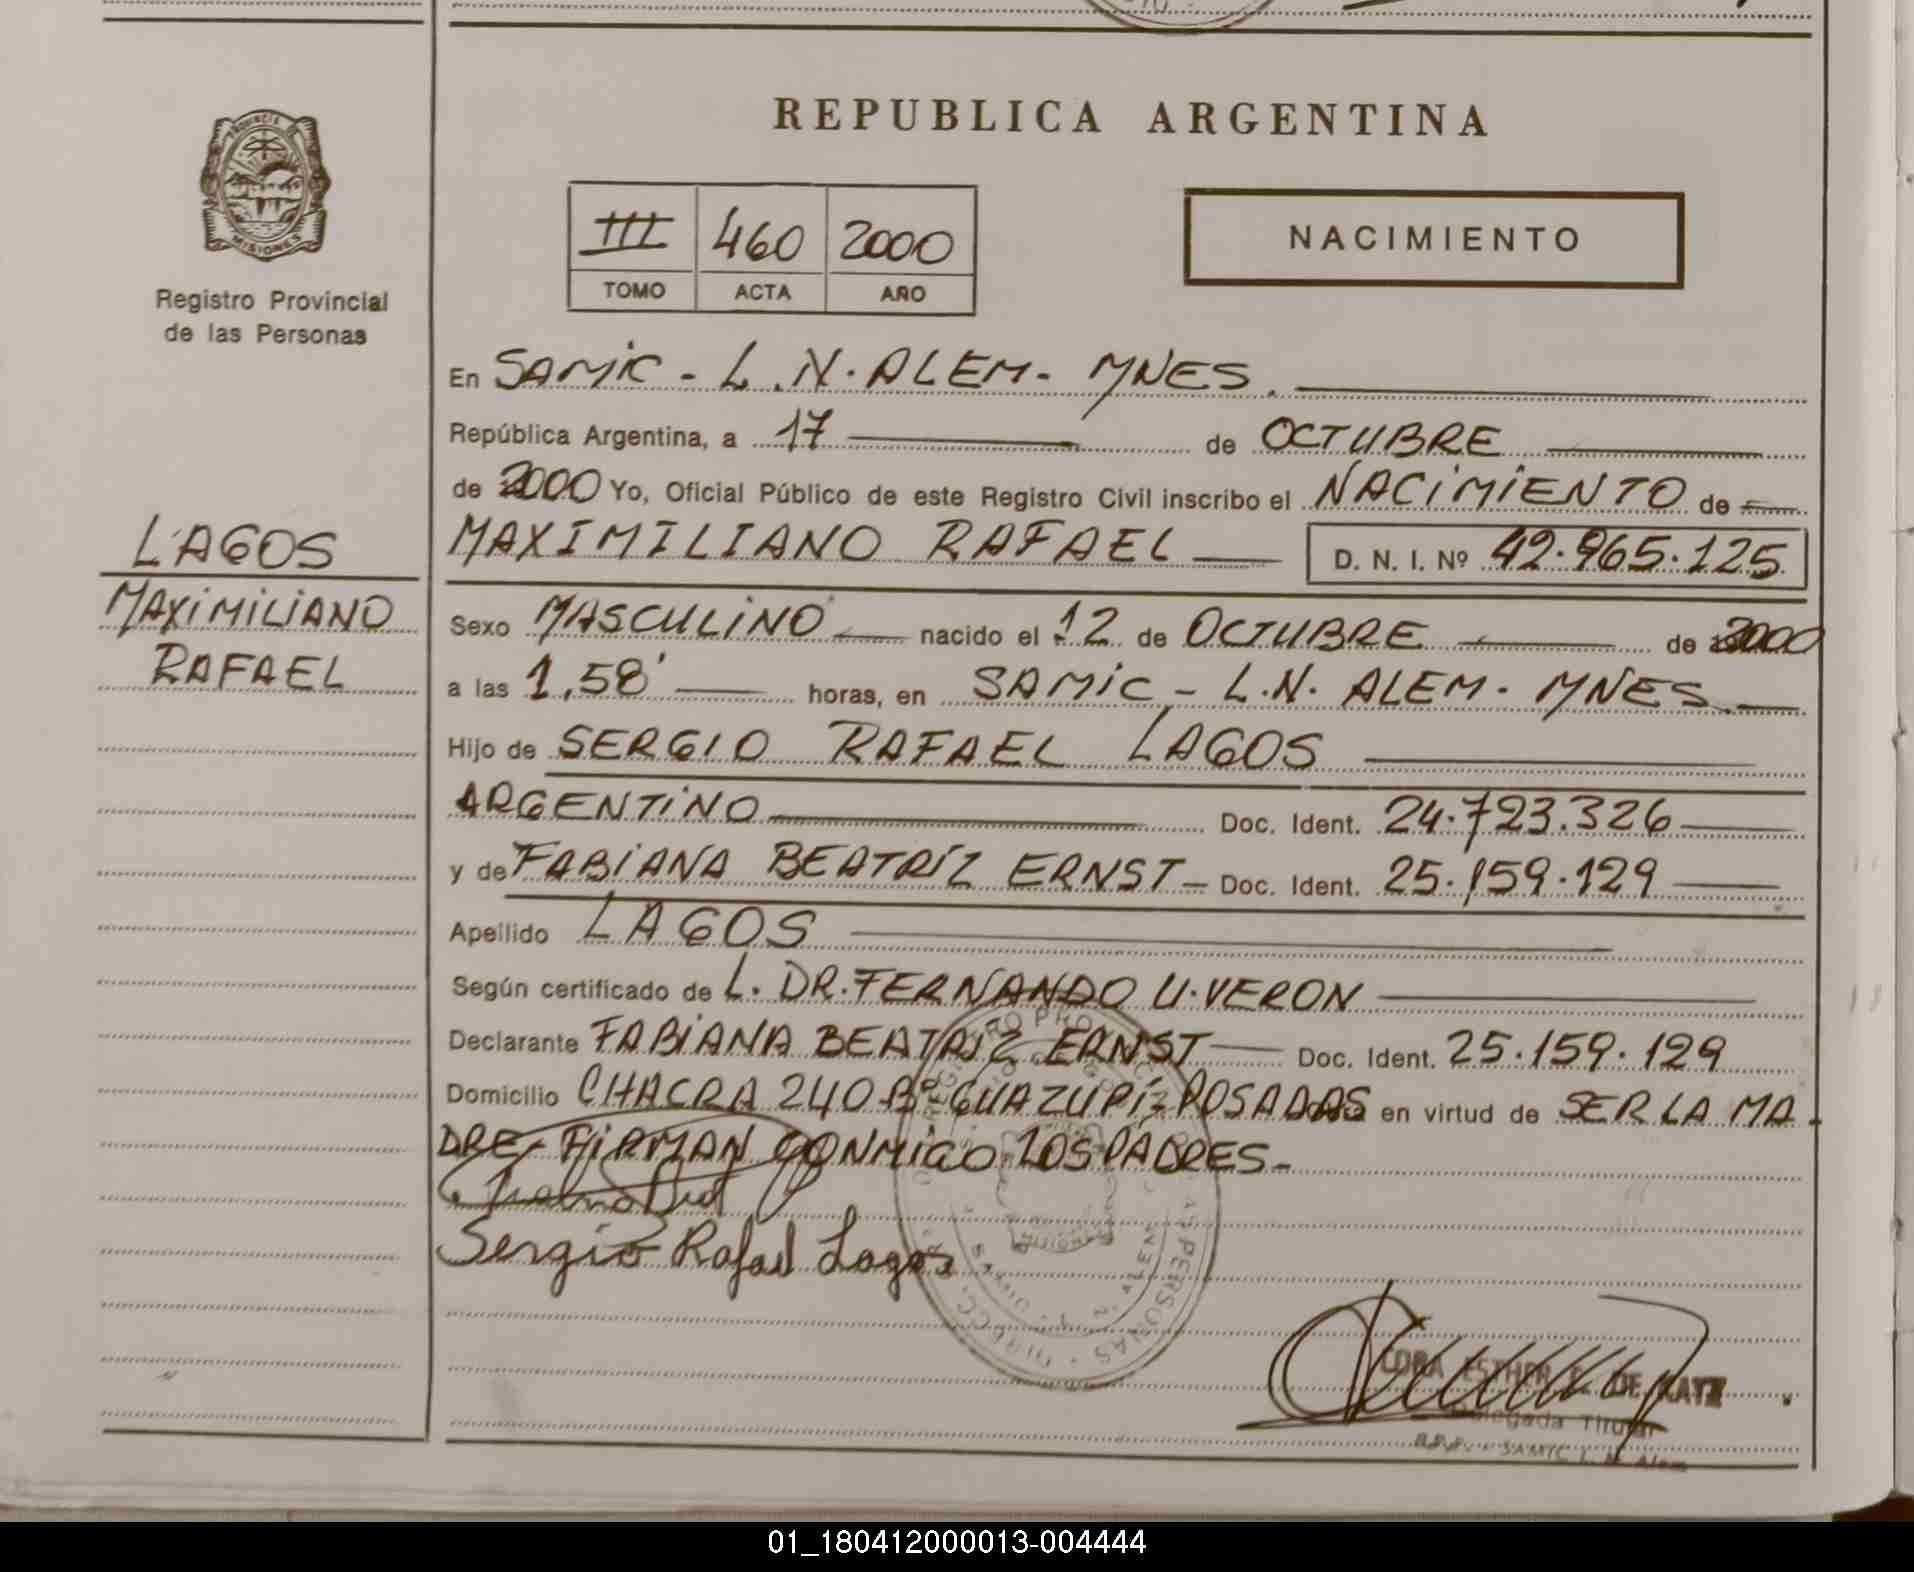 REPUBLICA ARGENTINA
PROVINCIA DE
MISIONES
Registro Provincial
de las Personas
III 460 2000
TOMO ACTA AÑO
NACIMIENTO
En SAMIC - L.N. ALEM - MNES.
República Argentina, a 17 de OCTUBRE
de 2000 Yo, Oficial Público de este Registro Civil inscribo el NACIMIENTO de
MAXIMILIANO RAFAEL D. N. I. Nº 42.965.125
LAGOS
MAXIMILIANO
RAFAEL
Sexo MASCULINO nacido el 12 de OCTUBRE de 2000
a las 1,58' horas, en SAMIC - L.N. ALEM - MNES.
Hijo de SERGIO RAFAEL LAGOS
ARGENTINO Doc. Ident. 24.723.326
y de FABIANA BEATRIZ ERNST Doc. Ident. 25.159.129
Apellido LAGOS
Según certificado de L. DR. FERNANDO U. VERON
Declarante FABIANA BEATRIZ ERNST Doc. Ident. 25.159.129
Domicilio CHACRA 240 Bº GUAZUPÍ - POSADAS en virtud de SER LA MA-
DRE - FIRMAN CONMIGO LOS PADRES -
Sergio Rafael Lagos
ESTHER DE KATZ
Delegada Titular
SAMIC L. N. Alem
01_180412000013-004444